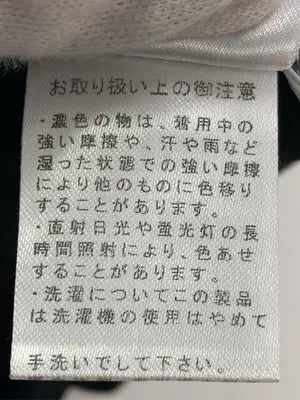 お取り扱い上の御注意
・濃色の物は、着用中の
強い摩擦や、汗や雨など
湿った状態での強い摩擦
により他のものに色移り
することがあります。
・直射日光や蛍光灯の長
時間照射により、色あせ
することがあります。
・洗濯についてこの製品
は洗濯機の使用はやめて
手洗いでして下さい。